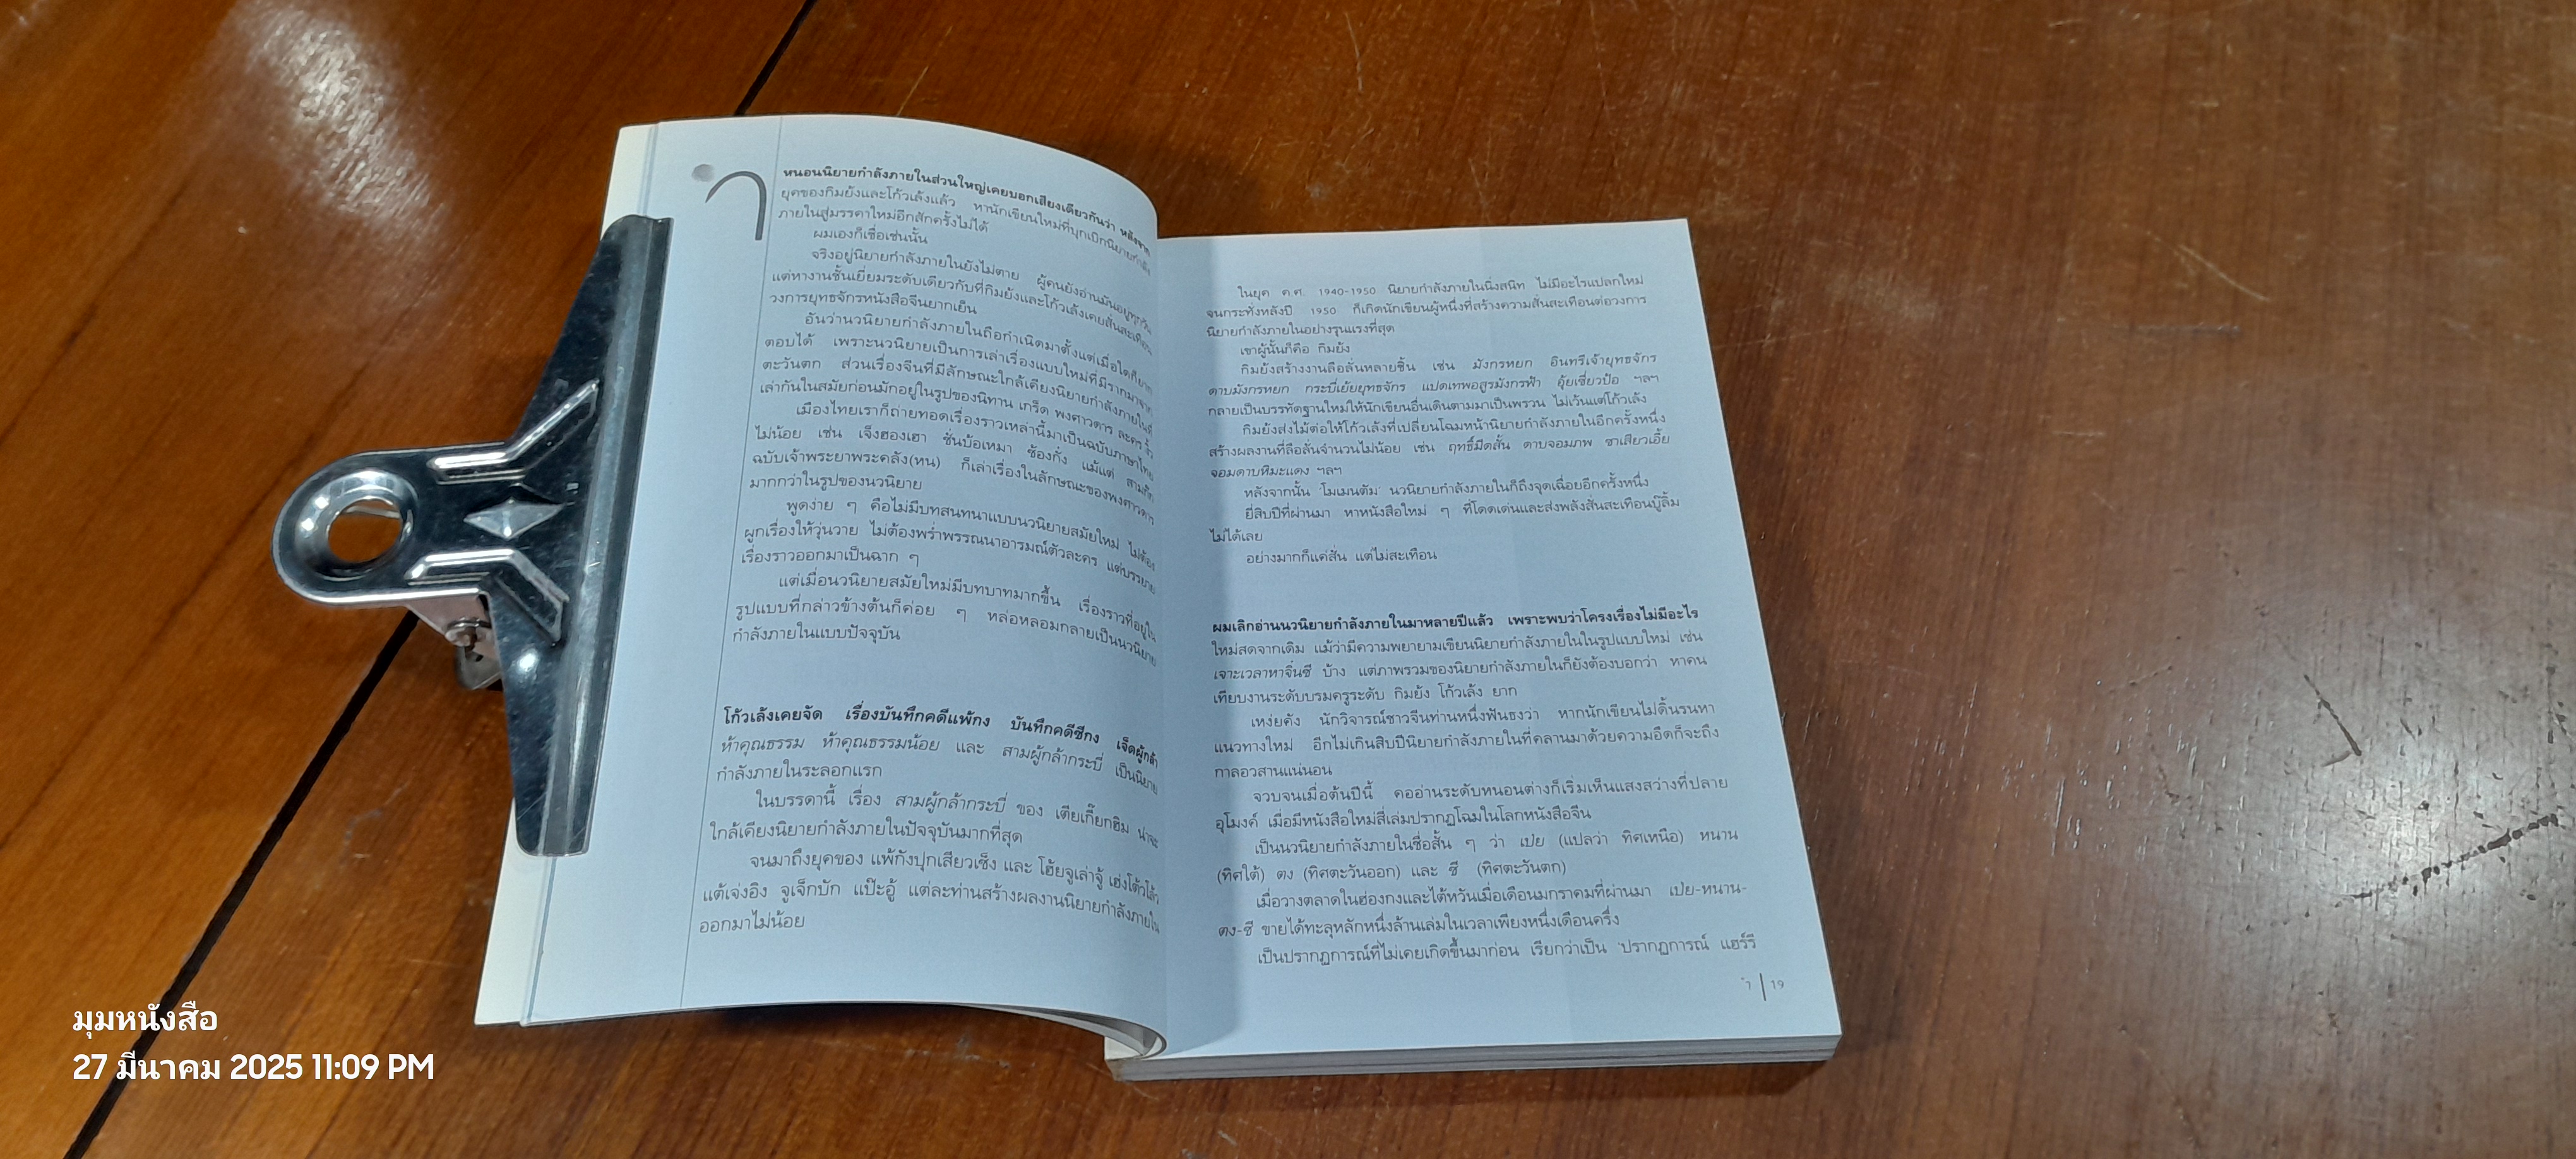 ำ
หนอนนิยายกำลังภายในส่วนใหญ่เคยบอกเสียงเดียวกันว่า หลังจาก
ยุคของกิมย้งและโก้วเล้งแล้ว หานักเขียนใหม่ที่บุกเบิกนิยายกำลัง
ภายในสู่มรรคาใหม่อีกสักครั้งไม่ได้
ผมเองก็เชื่อเช่นนั้น
จริงอยู่นิยายกำลังภายในยังไม่ตาย ผู้คนยังอ่านมันอยู่ทุกวัน
แต่หางานชั้นเยี่ยมระดับเดียวกับที่กิมย้งและโก้วเล้งเคยสั่นสะเทือน
วงการยุทธจักรหนังสือจีนยากเย็น
อันว่านวนิยายกำลังภายในถือกำเนิดมาตั้งแต่เมื่อใดก็ยาก
ตอบได้ เพราะนวนิยายเป็นการเล่าเรื่องแบบใหม่ที่มีรากมาจาก
ตะวันตก ส่วนเรื่องจีนที่มีลักษณะใกล้เคียงนิยายกำลังภายในที่
เล่ากันในสมัยก่อนมักอยู่ในรูปของนิทาน เกร็ด พงศาวดาร ละคร งิ้ว
เมืองไทยเราก็ถ่ายทอดเรื่องราวเหล่านี้มาเป็นฉบับภาษาไทย
ไม่น้อย เช่น เจ็งฮองเฮา ซั่นบ้อเหมา ซ้องกั๋ง แม้แต่ สามก๊ก
ฉบับเจ้าพระยาพระคลัง(หน) ก็เล่าเรื่องในลักษณะของพงศาวดาร
มากกว่าในรูปของนวนิยาย
พูดง่าย ๆ คือไม่มีบทสนทนาแบบนวนิยายสมัยใหม่ ไม่ต้อง
ผูกเรื่องให้วุ่นวาย ไม่ต้องพร่ำพรรณนาอารมณ์ตัวละคร แต่บรรยาย
เรื่องราวออกมาเป็นฉาก ๆ
แต่เมื่อนวนิยายสมัยใหม่มีบทบาทมากขึ้น เรื่องราวที่อยู่ใน
รูปแบบที่กล่าวข้างต้นก็ค่อย ๆ หล่อหลอมกลายเป็นนวนิยาย
กำลังภายในแบบปัจจุบัน
โก้วเล้งเคยจัด เรื่องบันทึกคดีแพ้กง บันทึกคดีซีกง เจ็ดผู้กล้า
ห้าคุณธรรม ห้าคุณธรรมน้อย และ สามผู้กล้ากระบี่ เป็นนิยาย
กำลังภายในระลอกแรก
ในบรรดานี้ เรื่อง สามผู้กล้ากระบี่ ของ เตียเกี๊ยกฮิม น่าจะ
ใกล้เคียงนิยายกำลังภายในปัจจุบันมากที่สุด
จนมาถึงยุคของ แพ้กังปุกเสียวเซ็ง และ โฮ้ยจูเล่าจู้ เฮ่งโต้วโล้ว
แต้เจ่งอิง จูเจ็กบัก แป๊ะอู้ แต่ละท่านสร้างผลงานนิยายกำลังภายใน
ออกมาไม่น้อย
ในยุค ค.ศ. 1940-1950 นิยายกำลังภายในนิ่งสนิท ไม่มีอะไรแปลกใหม่
จนกระทั่งหลังปี 1950 ก็เกิดนักเขียนผู้หนึ่งที่สร้างความสั่นสะเทือนต่อวงการ
นิยายกำลังภายในอย่างรุนแรงที่สุด
เขาผู้นั้นก็คือ กิมย้ง
กิมย้งสร้างงานลือลั่นหลายชิ้น เช่น มังกรหยก อินทรีเจ้ายุทธจักร
ดาบมังกรหยก กระบี่เย้ยยุทธจักร แปดเทพอสูรมังกรฟ้า อุ้ยเซี่ยวป้อ ฯลฯ
กลายเป็นบรรทัดฐานใหม่ให้นักเขียนอื่นเดินตามมาเป็นพรวน ไม่เว้นแต่โก้วเล้ง
กิมย้งส่งไม้ต่อให้โก้วเล้งที่เปลี่ยนโฉมหน้านิยายกำลังภายในอีกครั้งหนึ่ง
สร้างผลงานที่ลือลั่นจำนวนไม่น้อย เช่น ฤทธิ์มีดสั้น ดาบจอมภพ ชาเสียวเอี้ย
จอมดาบหิมะแดง ฯลฯ
หลังจากนั้น 'โมเมนตัม' นวนิยายกำลังภายในก็ถึงจุดเฉื่อยอีกครั้งหนึ่ง
ยี่สิบปีที่ผ่านมา หาหนังสือใหม่ ๆ ที่โดดเด่นและส่งพลังสั่นสะเทือนบู๊ลิ้ม
ไม่ได้เลย
อย่างมากก็แค่สั่น แต่ไม่สะเทือน
ผมเลิกอ่านนวนิยายกำลังภายในมาหลายปีแล้ว เพราะพบว่าโครงเรื่องไม่มีอะไร
ใหม่สดจากเดิม แม้ว่ามีความพยายามเขียนนิยายกำลังภายในในรูปแบบใหม่ เช่น
เจาะเวลาหาจิ๋นซี บ้าง แต่ภาพรวมของนิยายกำลังภายในก็ยังต้องบอกว่า หาคน
เทียบงานระดับบรมครูระดับ กิมย้ง โก้วเล้ง ยาก
เหง่ยคัง นักวิจารณ์ชาวจีนท่านหนึ่งฟันธงว่า หากนักเขียนไม่ดิ้นรนหา
แนวทางใหม่ อีกไม่เกินสิบปีนิยายกำลังภายในที่คลานมาด้วยความอืดก็จะถึง
กาลอวสานแน่นอน
จวบจนเมื่อต้นปีนี้ คออ่านระดับหนอนต่างก็เริ่มเห็นแสงสว่างที่ปลาย
อุโมงค์ เมื่อมีหนังสือใหม่สี่เล่มปรากฏโฉมในโลกหนังสือจีน
เป็นนวนิยายกำลังภายในชื่อสั้น ๆ ว่า เปย (แปลว่า ทิศเหนือ) หนาน
(ทิศใต้) ตง (ทิศตะวันออก) และ ซี (ทิศตะวันตก)
เมื่อวางตลาดในฮ่องกงและไต้หวันเมื่อเดือนมกราคมที่ผ่านมา เปย-หนาน-
ตง-ซี ขายได้ทะลุหลักหนึ่งล้านเล่มในเวลาเพียงหนึ่งเดือนครึ่ง
เป็นปรากฏการณ์ที่ไม่เคยเกิดขึ้นมาก่อน เรียกว่าเป็น 'ปรากฏการณ์ แฮร์รี
ำ | 19
มุมหนังสือ
27 มีนาคม 2025 11:09 PM